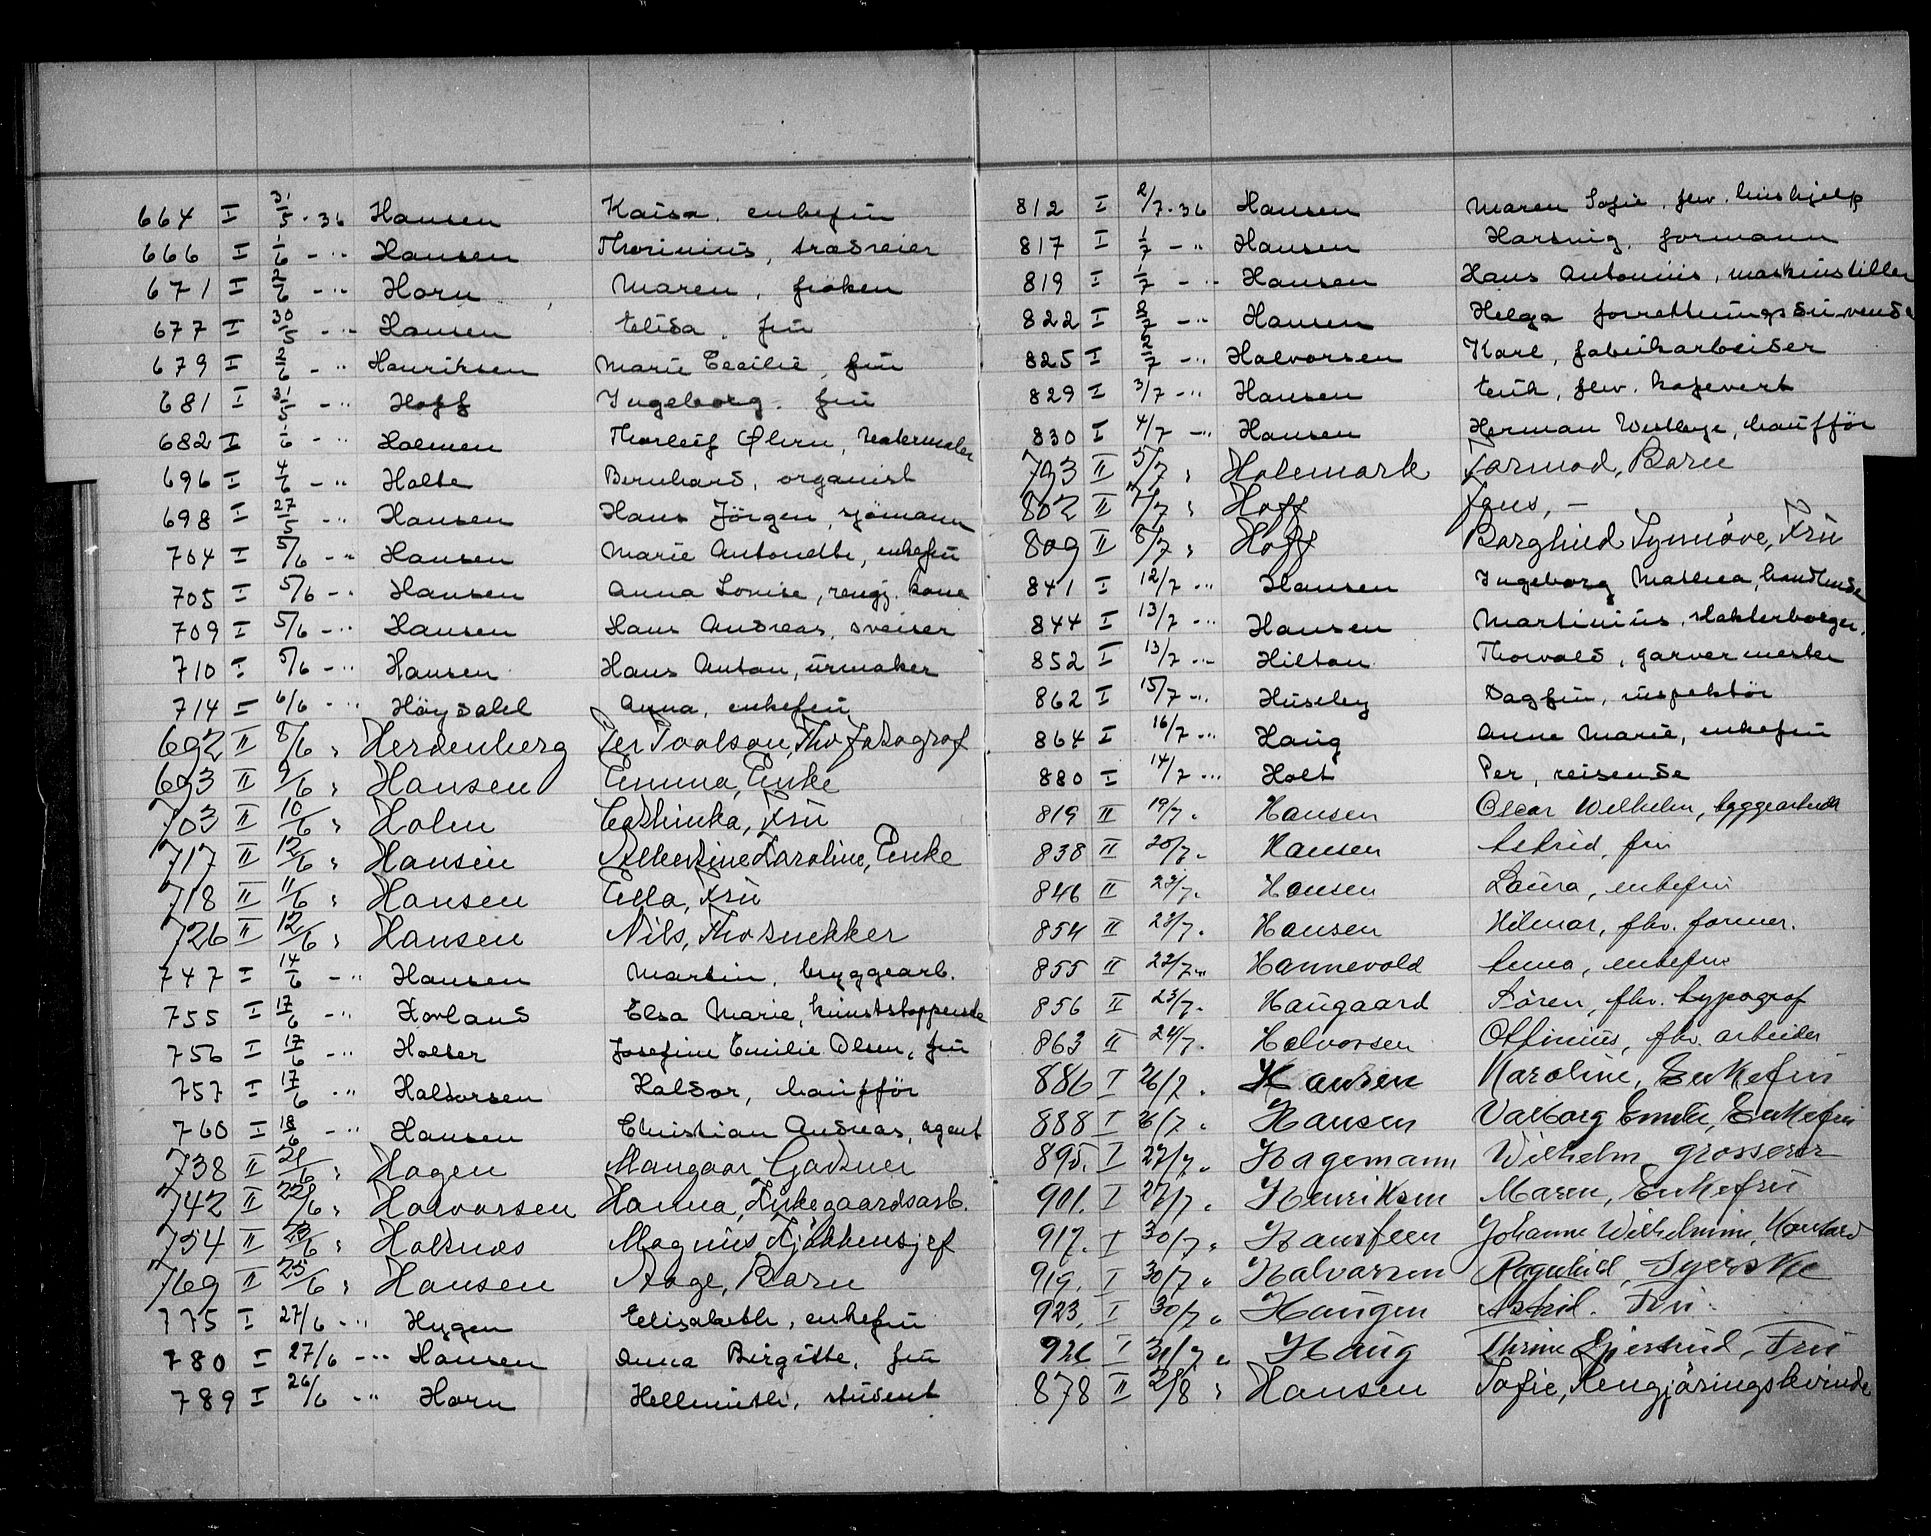 664 I 31/5 - 36 Hansen Kaisa, enkefru
666 I 1/6 - " Hansen Thorinius, trædreier
671 I 2/6 - " Horn Maren, frøken
677 I 30/5 - " Hansen Elida, fru
679 I 2/6 - " Henriksen Marie Cecilie, fru
681 I 31/5 - " Hoff Ingeborg, fru
682 I 1/6 - " Holmen Thorleif Øhrn,
696 I 4/6 - " Holte Bernhard, organist
698 I 27/5 - " Hansen Hans Jörgen, sjömann
704 I 5/6 - " Hansen Marie Antonette, enkefru
705 I 5/6 - " Hansen Anna Lovise, rengj. kone
709 I 5/6 - " Hansen Hans Andreas, sveiser
710 I 5/6 - " Hansen Hans Anton, urmaker
714 I 6/6 - " Höydahl Anna, enkefru
692 II 8/6 " Herdenberg Per Paulson, Fhv fotograf
693 II 9/6 " Hansen Emma, Enke
703 II 10/6 " Holm Cathinka, Fru
717 II 12/6 " Hansen Albertine Karoline, Enke
718 II 11/6 " Hansen Ella, Fru
726 II 12/6 " Hansen Nils, Fhv snekker
747 I 14/6 - " Hansen Martin, byggearb.
755 I 17/6 - " Hovland Elsa Marie, kunststopperske
756 I 17/6 - " Holter Josefine Emilie Olsen, fru
757 I 17/6 - " Halvorsen Halvor, chaufför
760 I 18/6 - " Hansen Christian Andreas, agent
738 II 21/6 " Hagen Gartner
742 II 22/6 " Halvorsen Hanna, Kirkegaardsarb.
754 II 23/6 " Holtnæs Magnus Kjökkensjef
769 II 25/6 " Hansen Aage, Barn
775 I 27/6 - " Hygen Elisabeth, enkefru
780 I 27/6 - " Hansen Anna Birgitte, fru
789 I 26/6 - " Horn Hellmuth, student
812 I 2/7 - 36 Hansen Maren Sofie, fhv. hushjelp
817 I 1/7 - " Hansen Hartvig, formann
819 I 1/7 - " Hansen Hans Antonius, maskinstiller
822 I 2/7 - " Hansen Helga forretningsdrivende
825 I 2/7 - " Halvorsen Karl, fabrikarbeider
829 I 3/7 - " Hansen Erik, fhv. kafevert
830 I 4/7 - " Hansen Herman Westbye, chaufför
793 II 5/7 " Holmmark Tormod, Barn
802 II 7/7 " Hoff Jens, —
809 II 8/7 " Hoff Borghild Synnöve, Fru
841 I 12/7 - " Hansen Ingeborg Mathea, handlende
844 I 13/7 - " Hansen Martinius, slakterborger.
852 I 13/7 - " Hilton Thorvald, garvermester
862 I 15/7 - " Huseby Dagfin, inspektör
864 I 16/7 - " Haug Anne Marie, enkefru
880 I 14/7 - " Holt Per, reisende
819 II 19/7 " Hansen Oscar Wilhelm, byggearbeider
838 II 20/7 " Hansen Astrid, fru
846 II 23/7 " Hansen Laura, enkefru
854 II 23/7 " Hansen Hilmar, fhv. former.
855 II 22/7 " Hannevold Anna, enkefru
856 II 23/7 " Haugaard Sören, fhv. typograf
863 II 24/7 " Halvorsen Othinius, fhv. arbeider
886 I 26/7 " Hansen Karoline, Enkefru
888 I 26/7 " Hansen Valborg Emilie, Enkefru
895. I 27/7 " Hagemann Wilhelm, grosserer
901. I 27/7 " Henriksen Maren, Enkefru
917. I 30/7 " Johanne Wilhelmine,
919. I 30/7 " Halvorsen Ragnhild, Syerske
923. I 30/7 " Haugen Astrid. Fru.
926 I 31/7 " Haug Thrine Gjertrud, Fru
878 II 2/8 " Hansen Sofie, Rengjöringskvinde